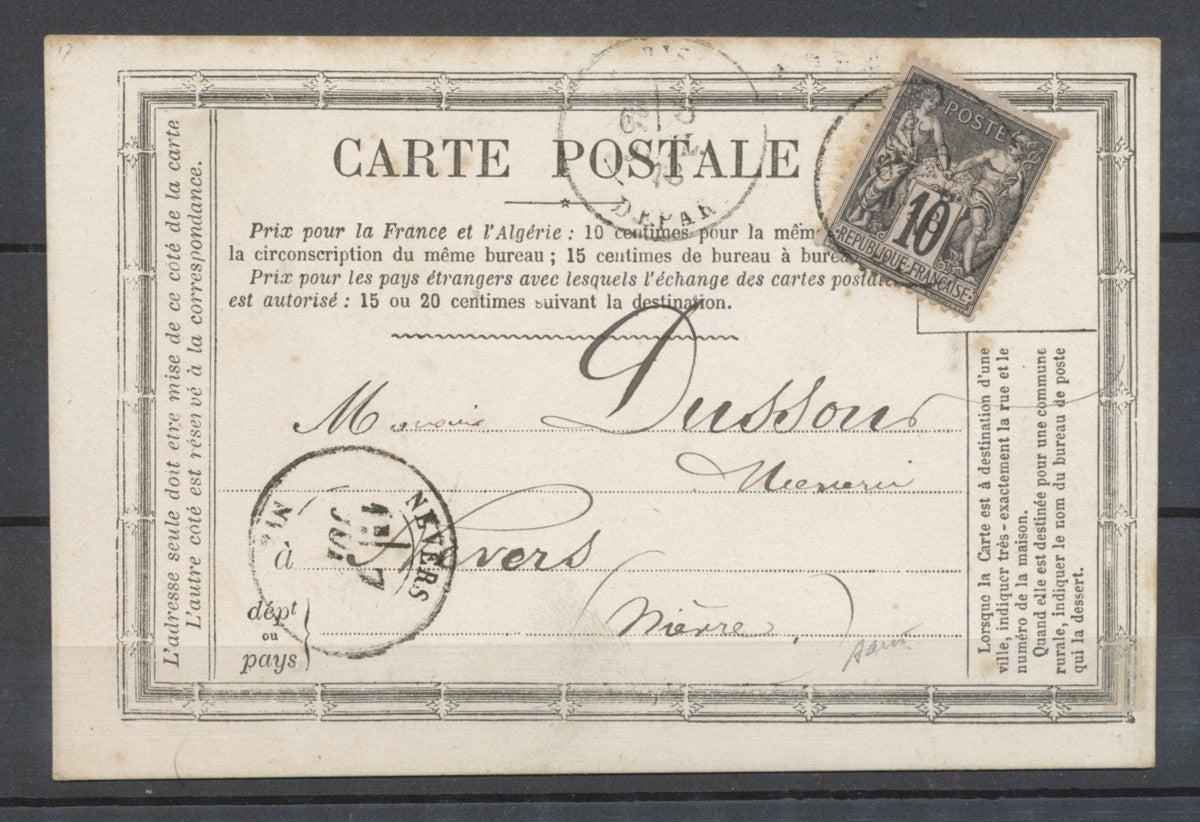 CARTE POSTALE
Prix pour la France et l'Algérie : 10 centimes pour la mêm
la circonscription du même bureau ; 15 centimes de bureau à bure
Prix pour les pays étrangers avec lesquels l'échange des cartes postale
est autorisé : 15 ou 20 centimes suivant la destination.
POSTE
10
REPUBLIQUE·FRANÇAISE·
DEPAR
L'adresse seule doit etre mise de ce côté de la carte
L'autre côté est réservé à la correspondance.
Monsieur Dussour
à Nevers
dépt
ou
pays
(Nièvre)
NEVERS
JUI
Lorsque la Carte est à destination d'une
ville, indiquer très-exactement la rue et le
numéro de la maison.
Quand elle est destinée pour une commune
rurale, indiquer le nom du bureau de poste
qui la dessert.